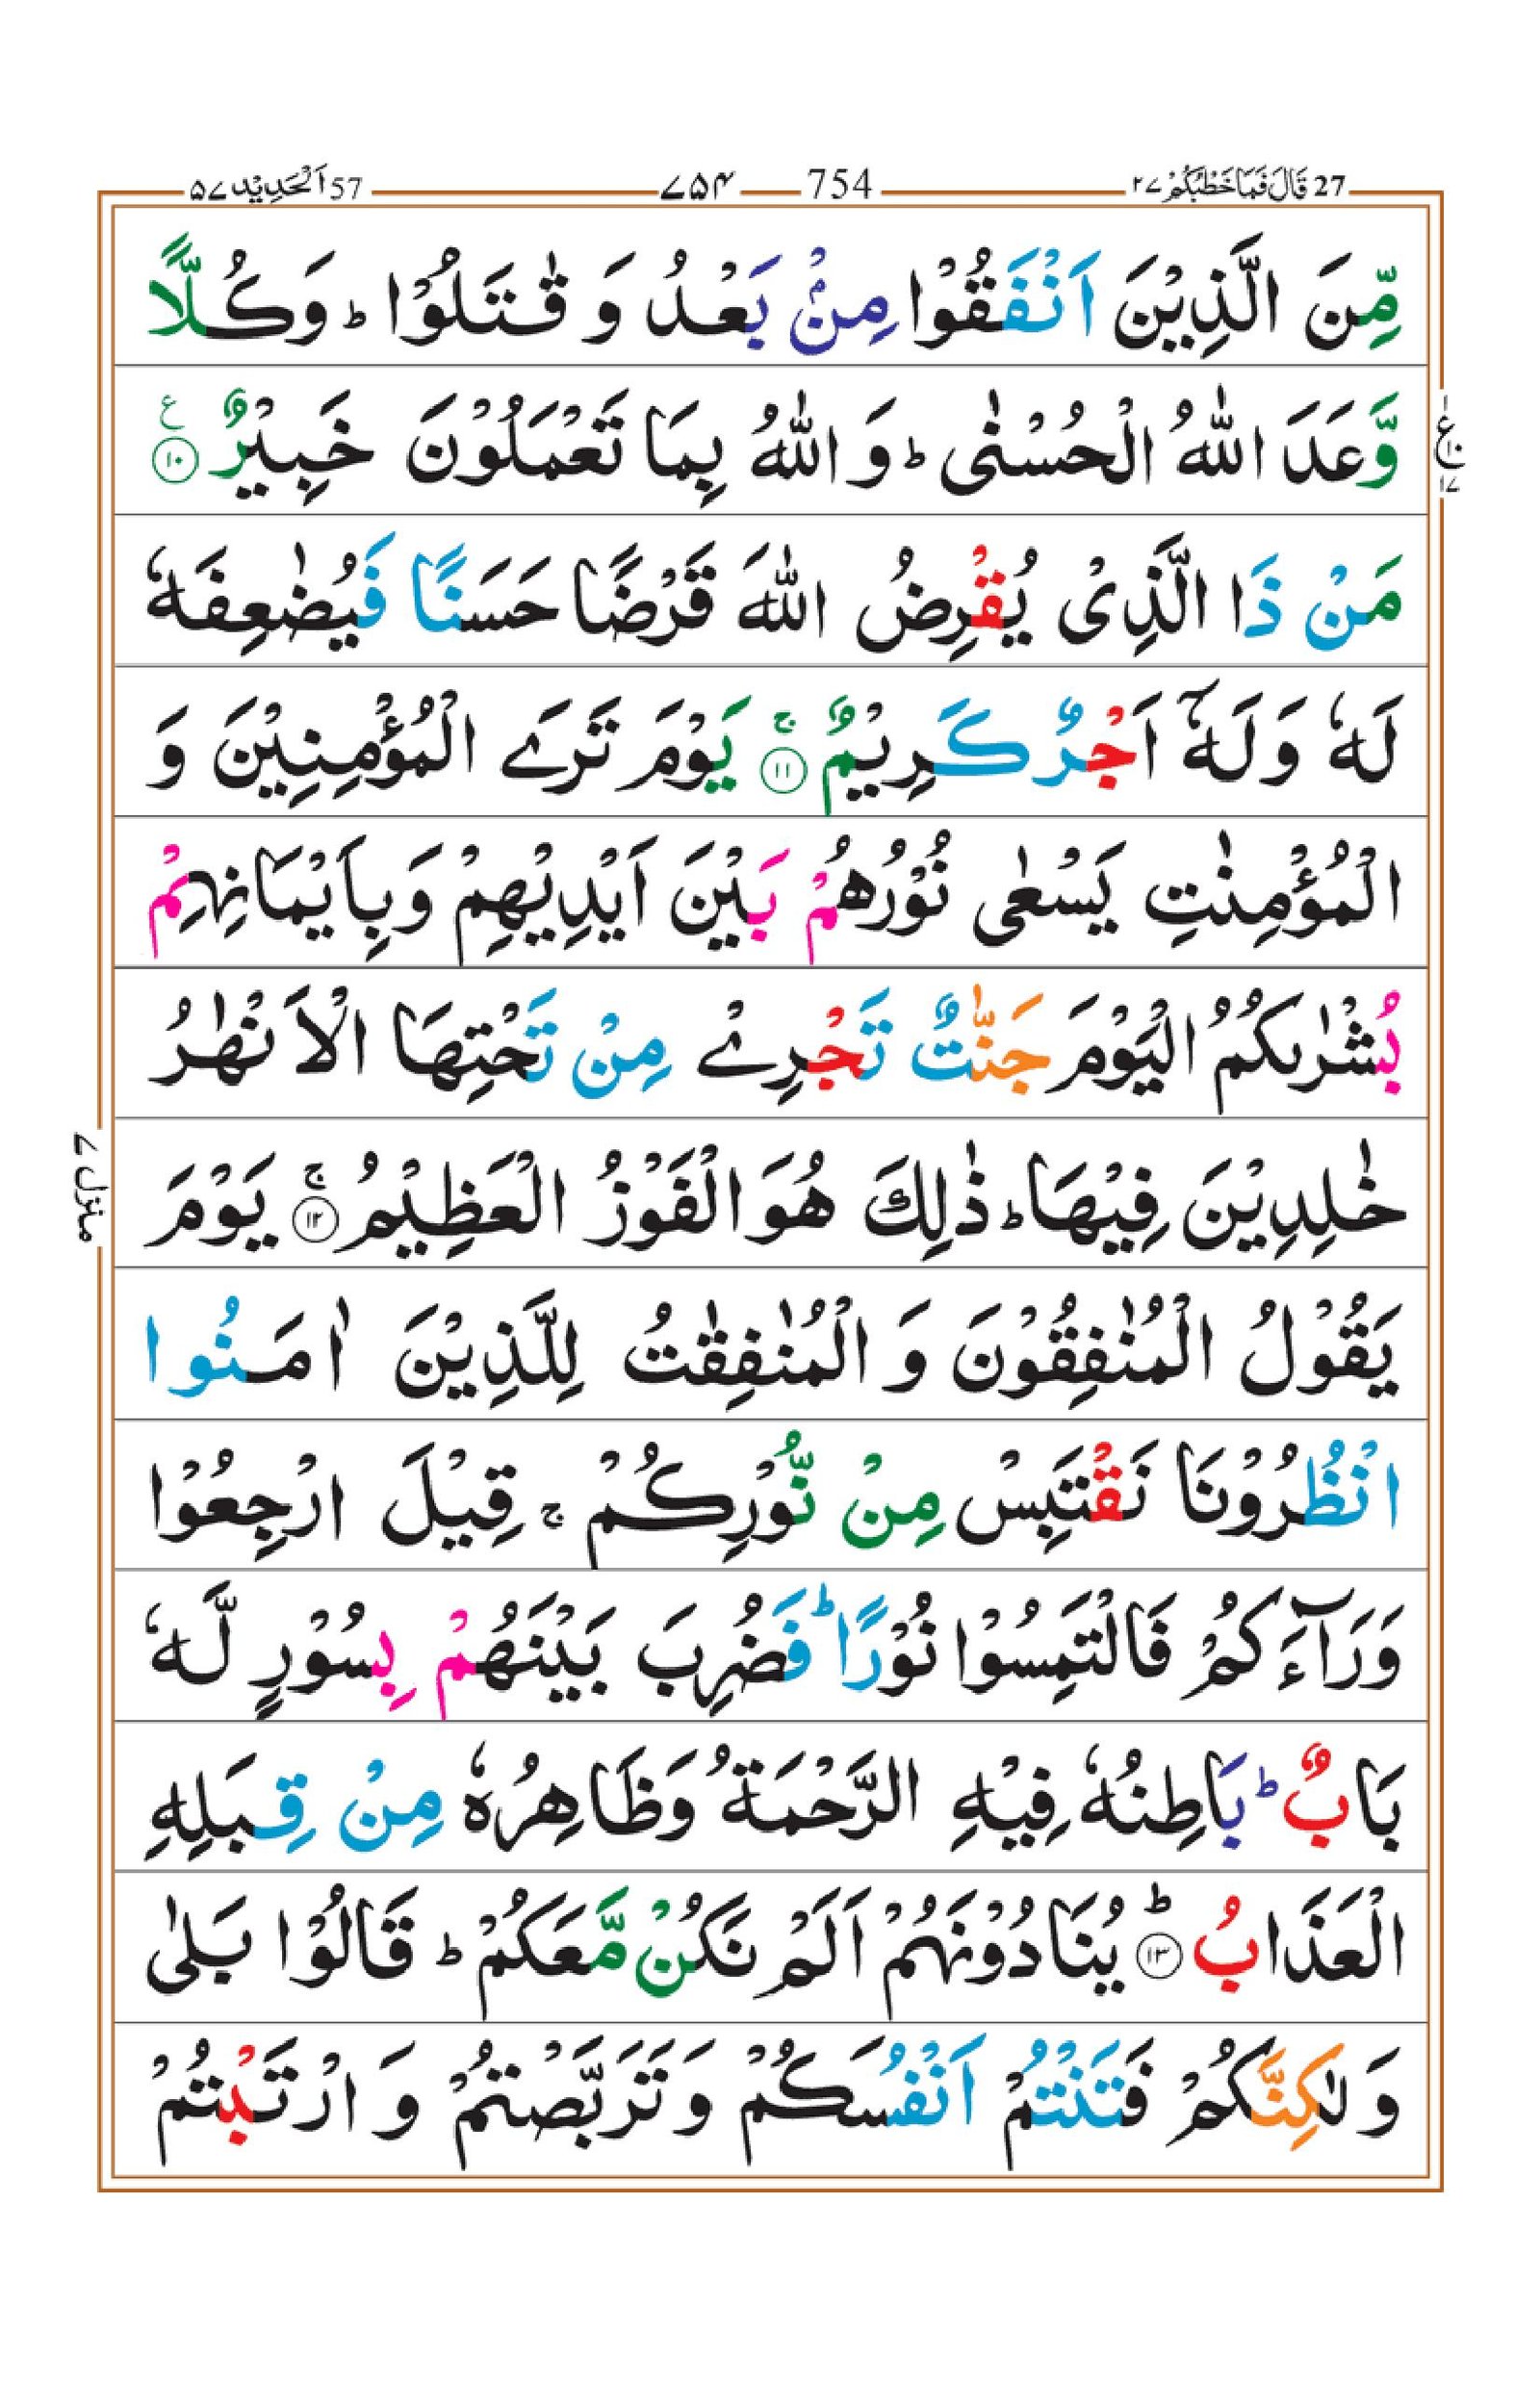 27 قَالَ فَمَا خَطْبُكُمْ ٢٧
754 ٧٥٤
57 اَلْحَدِيْد ٥٧
مِّنَ الَّذِيْنَ اَنْفَقُوْا مِنْۢ بَعْدُ وَ قٰتَلُوْا ؕ وَكُلًّا
وَّعَدَ اللّٰهُ الْحُسْنٰى ؕ وَ اللّٰهُ بِمَا تَعْمَلُوْنَ خَبِيْرٌ ۧ ۝۱۰
ع ۱۰ ۱۷
مَنْ ذَا الَّذِىْ يُقْرِضُ اللّٰهَ قَرْضًا حَسَنًا فَيُضٰعِفَهٗ
لَهٗ وَ لَهٗۤ اَجْرٌ كَرِيْمٌ ۚ ۝۱۱ يَوْمَ تَرَى الْمُؤْمِنِيْنَ وَ
الْمُؤْمِنٰتِ يَسْعٰى نُوْرُهُمْ بَيْنَ اَيْدِيْهِمْ وَبِاَيْمَانِهِمْ
بُشْرٰىكُمُ الْيَوْمَ جَنّٰتٌ تَجْرِىْ مِنْ تَحْتِهَا الْاَنْهٰرُ
خٰلِدِيْنَ فِيْهَا ؕ ذٰلِكَ هُوَ الْفَوْزُ الْعَظِيْمُ ۚ ۝۱۲ يَوْمَ
منزل ٧
يَقُوْلُ الْمُنٰفِقُوْنَ وَ الْمُنٰفِقٰتُ لِلَّذِيْنَ اٰمَنُوا
انْظُرُوْنَا نَقْتَبِسْ مِنْ نُّوْرِكُمْ ۚ قِيْلَ ارْجِعُوْا
وَرَآءَكُمْ فَالْتَمِسُوْا نُوْرًا ؕ فَضُرِبَ بَيْنَهُمْ بِسُوْرٍ لَّهٗ
بَابٌ ؕ بَاطِنُهٗ فِيْهِ الرَّحْمَةُ وَظَاهِرُهٗ مِنْ قِبَلِهِ
الْعَذَابُ ؕ ۝۱۳ يُنَادُوْنَهُمْ اَلَمْ نَكُنْ مَّعَكُمْ ؕ قَالُوْا بَلٰى
وَ لٰكِنَّكُمْ فَتَنْتُمْ اَنْفُسَكُمْ وَ تَرَبَّصْتُمْ وَ ارْتَبْتُمْ